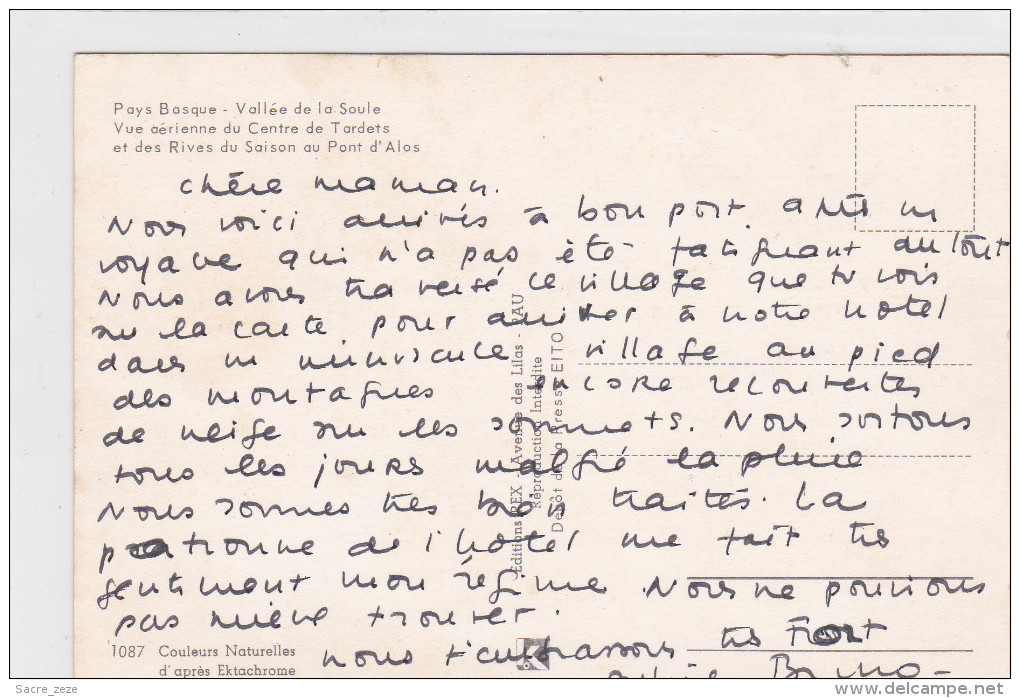 Pays Basque - Vallée de la Soule
Vue aérienne du Centre de Tardets
et des Rives du Saison au Pont d'Alos
chère maman.
Nous voici arrivés à bon port après un
voyage qui n'a pas été fatiguant du tout
Nous avons traversé ce village que tu vois
sur la carte pour arriver à notre hotel
dans un minuscule village au pied
des montagnes encore recouvertes
de neige sur les sommets. Nous sortons
tous les jours malgré la pluie
Nous sommes très bien traités. La
patronne de l'hotel me fait très
gentiment mon régime. Nous ne pouvions
pas mieux trouver.
nous t'embrassons très Fort
Bruno-
1087 Couleurs Naturelles
d'après Ektachrome
Editions REX Avenue des Lilas - PAU
Reproduction Interdite
Dépôt de la Presse EITO
Sacre_zeze
www.delcampe.net